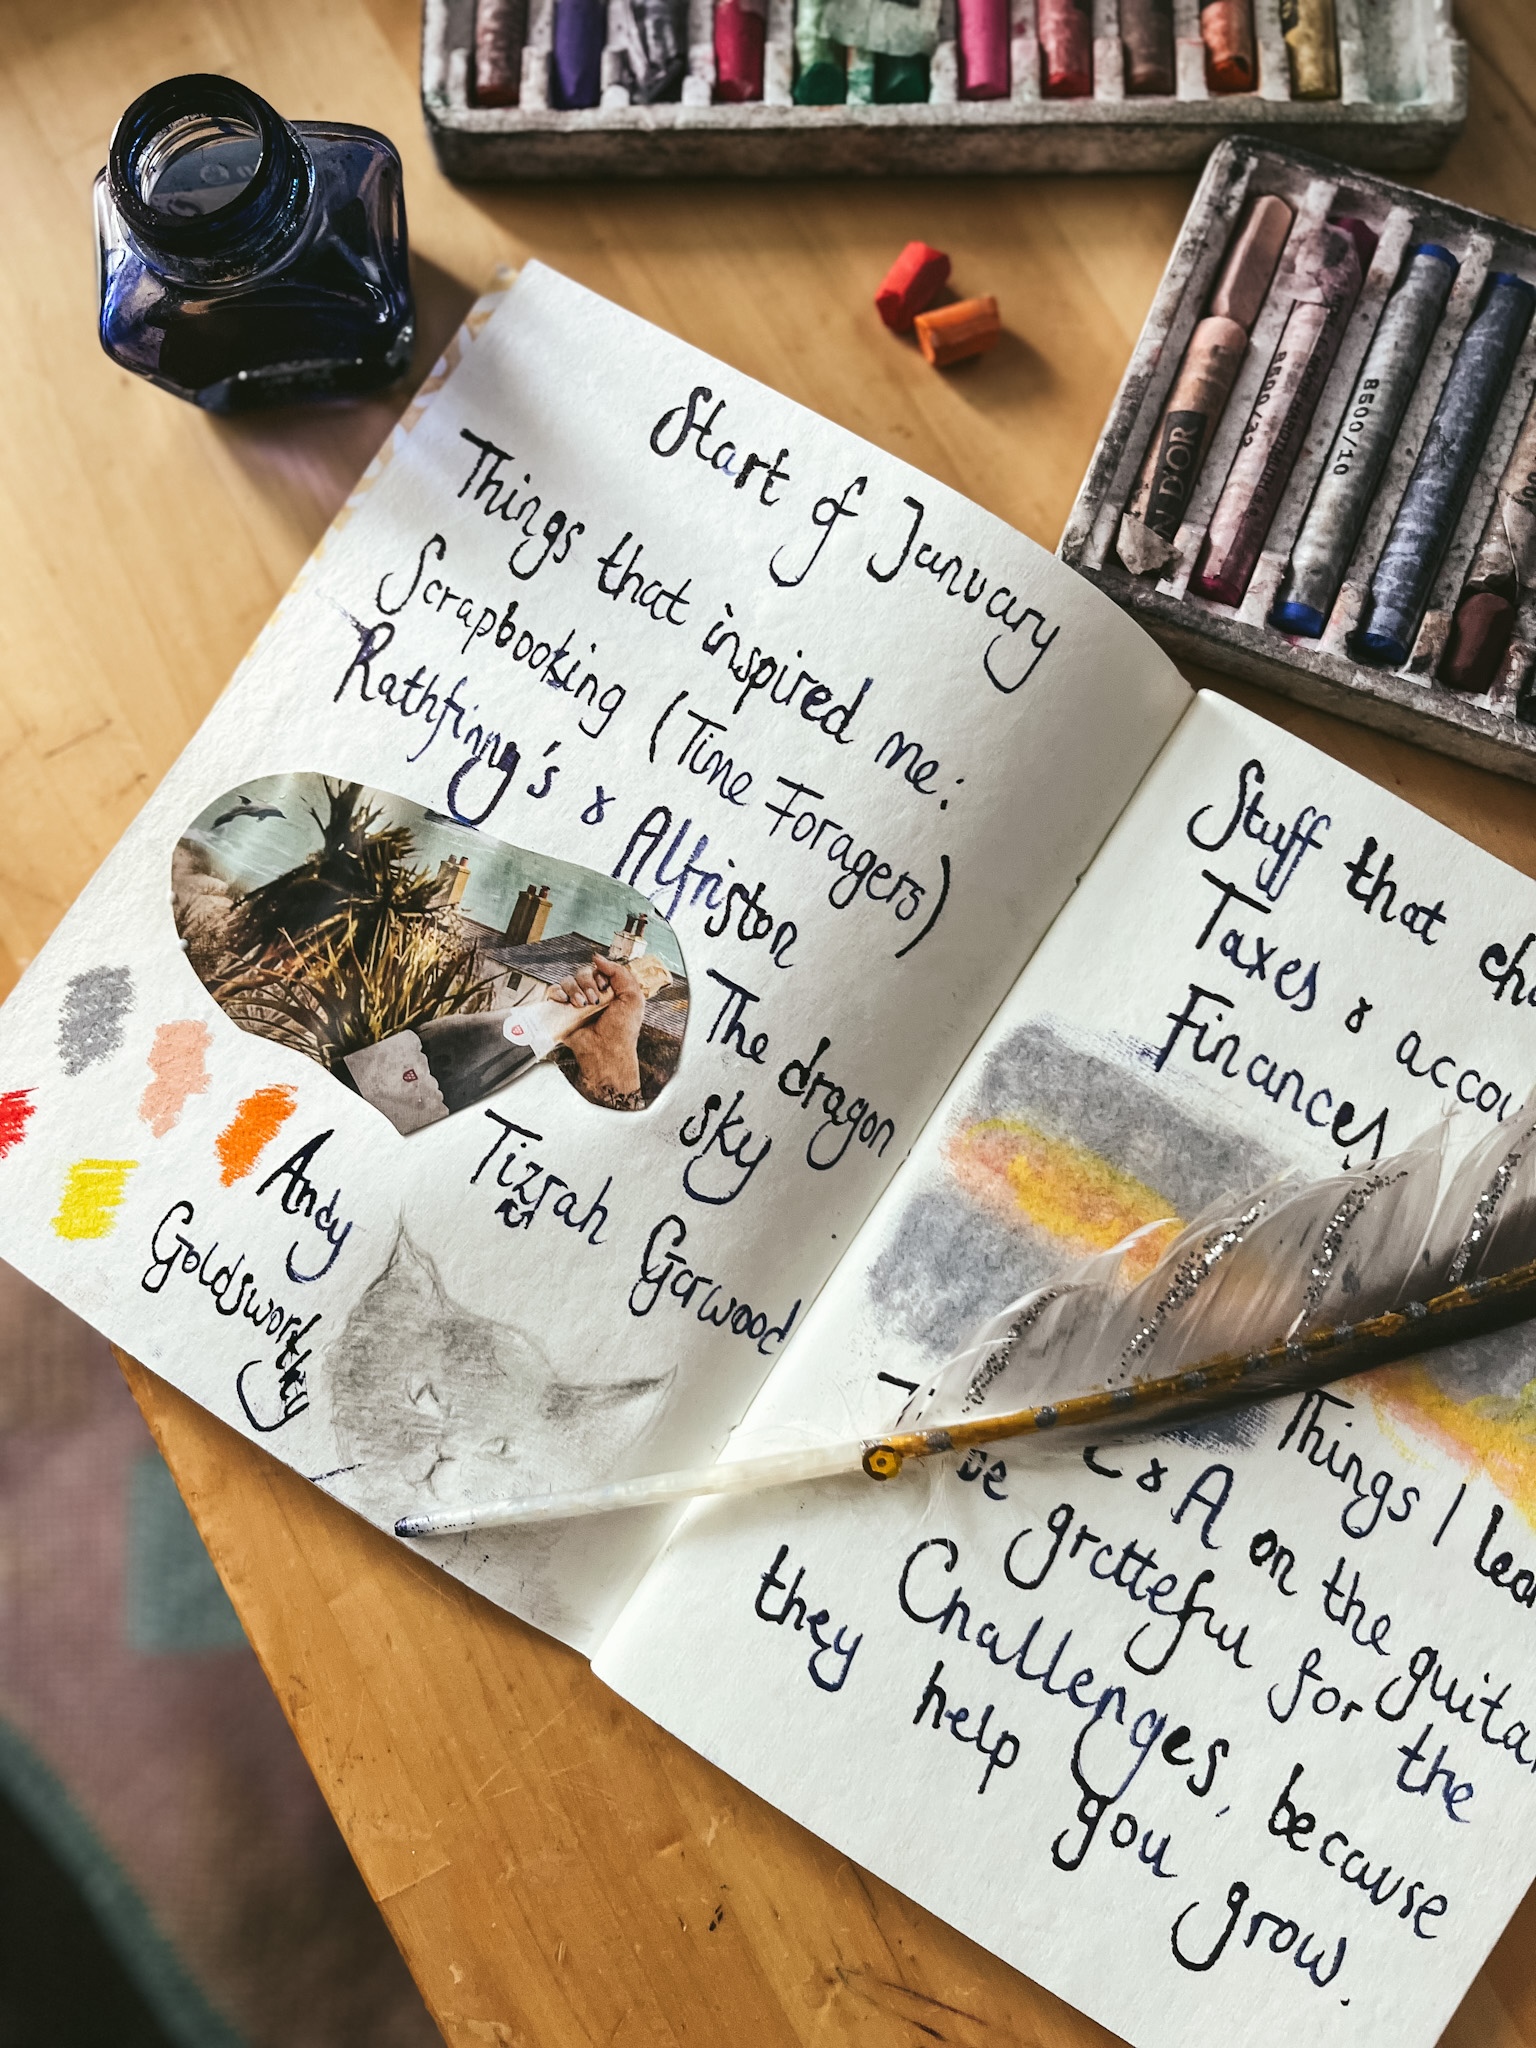 Start of January
Things that inspired me:
Scrapbooking (Time Foragers)
Rathfinny's & Alfriston
The dragon
sky
Tizrah Garwood
Andy
Goldsworthy
Stuff that
Taxes &
Finances
Things I
C & A on the
be gratteful for the
Challenges, because
they help you grow.
N D'OR
8500/10